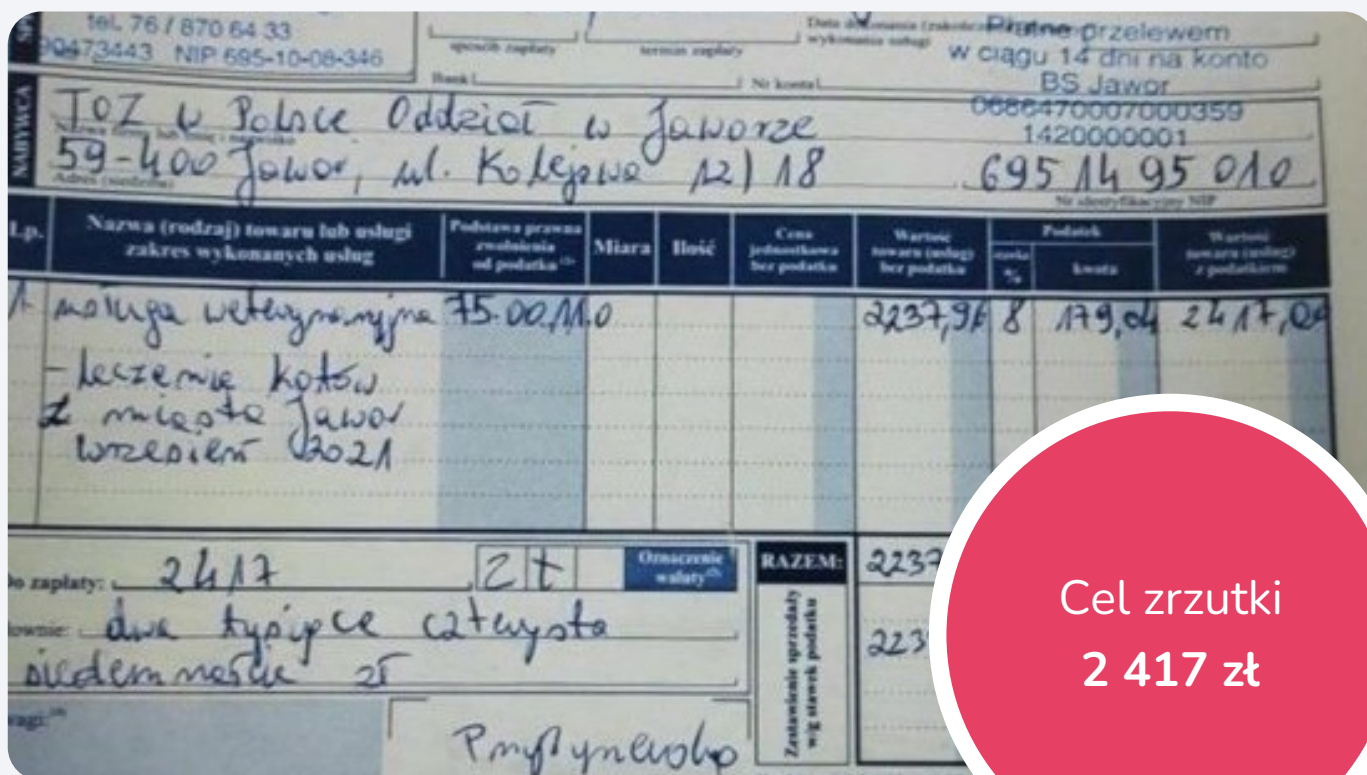 tel. 76 / 870 64 33
90473443 NIP 695-10-08-346
sposób zapłaty
termin zapłaty
wykonania usługi
Płatne przelewem
w ciągu 14 dni na konto
BS Jawor
0686470007000359
1420000001
Bank
Nr konta
NABYWCA
TOZ w Polsce Oddział w Jaworze
59-400 Jawor, ul. Kolejowa 12/18
695 14 95 010
Adres (siedziba)
Nr identyfikacyjny NIP
Lp.
Nazwa (rodzaj) towaru lub usługi
zakres wykonanych usług
Podstawa prawna
zwolnienia
od podatku
Miara
Ilość
Cena
jednostkowa
bez podatku
Wartość
towaru (usługi)
bez podatku
Podatek
stawka
%
kwota
Wartość
towaru (usługi)
z podatkiem
1. usługa weterynaryjna 75.00.11.0 2237,96 8 179,04 2417,00
- leczenie kotów
z miasta Jawor
wrzesień 2021
Do zapłaty: 2417 zł
Oznaczenie
waluty
RAZEM:
2237
słownie: dwa tysiące czterysta
siedemnaście zł
Zestawienie sprzedaży
w/g stawek podatku
223
Cel zrzutki
2 417 zł